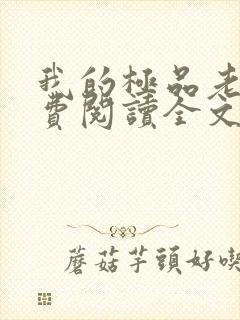 我的極品老
費閱讀全文
蘑菇芋頭好喫